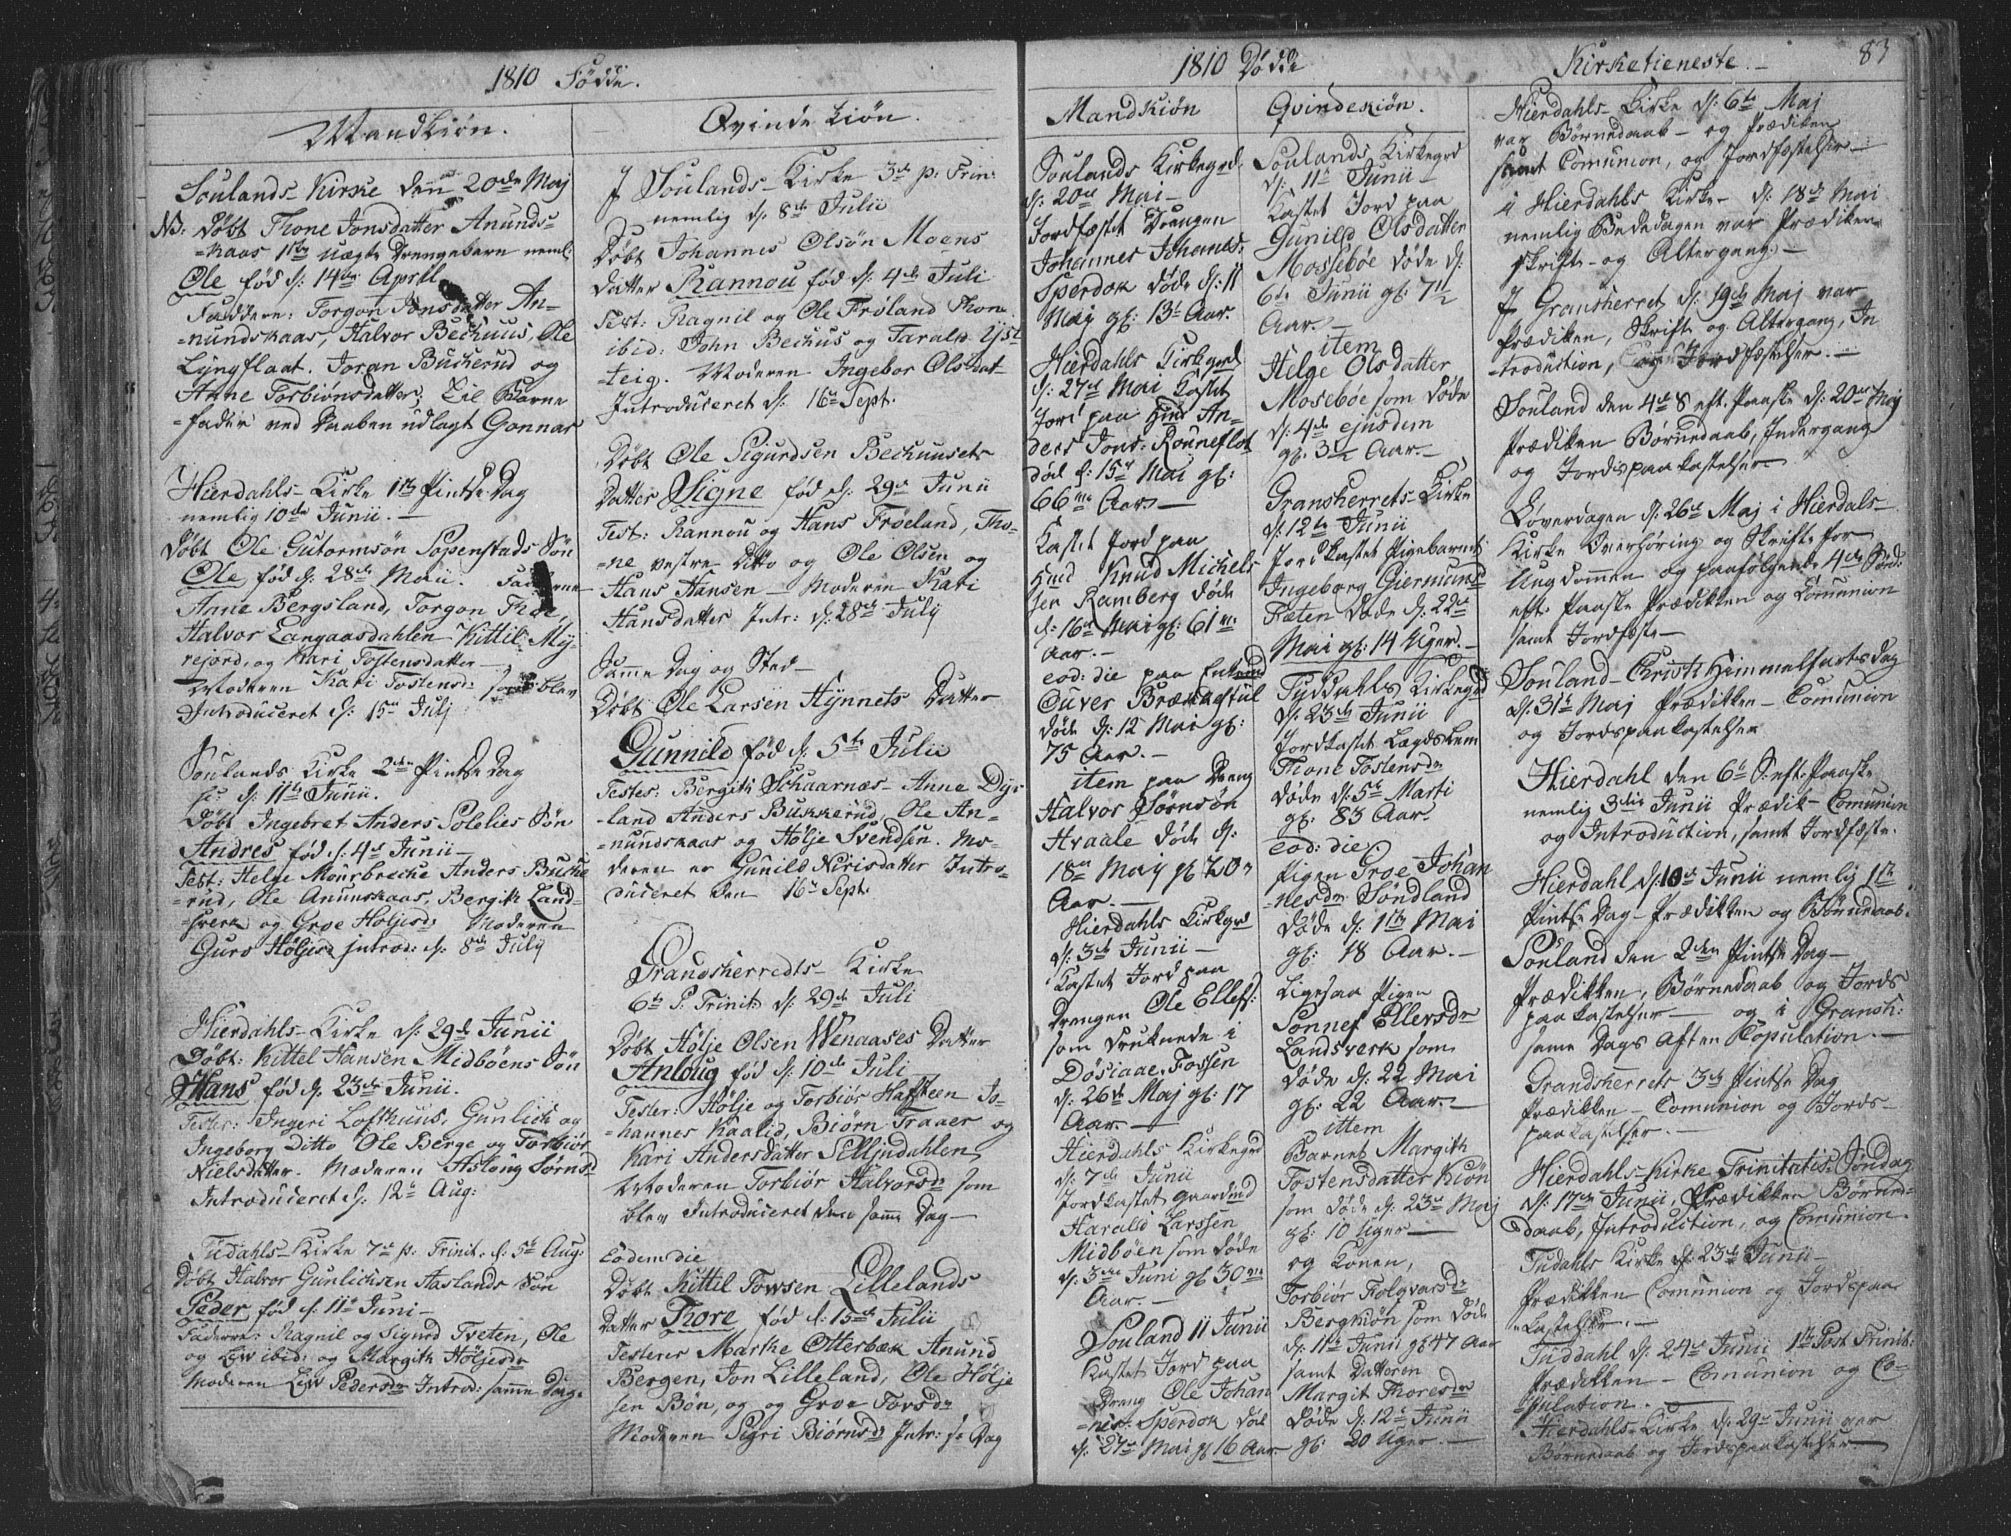 1810 Fødde.
Mandkiön.
Soulands Kirke denn 20de Maj
NB: Døbt Thone Jonsdatter Anunds-
=kaas 1ste uægte Drengebarn neml:
Ole fød d: 14de April
Faddere: Torgon Jonsdatter An-
=nundskaas, Halvor Bechuus, Ole
Lyngflaat. Joran Buckerud og
Anne Torbiönsdatter, Til Barne
=fader ved Daaben udlagt Gonnar
Hierdahls-Kirke 1ste Pintse Dag
nemlig 10de Junii.-
Døbt Ole Gutormsön Sopenstads Sön
Ole, fød d: 28de Maii. Faddere
Anne Bergsland, Torgon Thoe,
Halvor Langaasdahlen Kittil My-
rejord, og Kari Tostensdatter-
Moderen Kari Tostensd: blev
Introduceret d: 15de Julj
Soulands Kirke 2den Pintse Dag
d: 11te Junii.
Döbt Ingebret Anders Sölelies Sön
Andres fød d: 4de Junii-
Test: Helge Mousbreche Anders Bucke
=rud, Ole Anunskaas, Bergith Land-
sverk og Groe Holjesd: Moderen
Guro Höljesd introd: d: 8de July
Hierdahls-Kirke d: 29de Junii
Døbt: Kittel Hansen Midböens Sön
Hans fød d: 23de Junii.
Tester: Ingeri Lofthuus, Gunlich og
Ingeborg Ditto Ole Berge og Torbiör
Nielsdatter. Moderen Aslong Sörnsd
Introduceret d: 12te Aug:
Tudahls-Kirke 7de p: Trinit: d: 5te Aug:
Døbt Halvor Gunlichsen Haslands Sön
Peder fød d: 11te Juni-
Fadere: Ragnil og Sigurd Tveten, Ole
og Liv ibid: og Margith Höljesdr
Moderen Liv Pedersdr Introd: samme Dag.
Qvinde kiön.
I Soulands-Kirke 3de p: Trin:
nemlig d: 8de Julii
Døbt Johannes Olsön Moens
Datter Rannou fød d: 4de Juli
Test: Ragnil og Ole Fröland Thon
ibid: John Bechus og Tarald Ljst
teig. Moderen Ingebor Olsdat-
Introduceret d: 16de Sept.
Døbt Ole Sigurdsen Bechuusets
Datter Signe fød d: 29de Junii
Test: Rannou og Hans Fröeland, Tho-
=ne vestre Ditto og Ole Olsen og
Hans Hansen - Moderen Kari
Hansdatter Intr: d: 28de July
Samme Dag og Sted-
Døbt Ole Larsen Hynnets Datter
Gunnild fød d: 5te Julii
Tester: Bergith Schaarnæs - Anne Dys
-land Anders Bukkerud, Ole An-
=nundskaas og Hölje Svendsen. Mo-
deren er Gunild Nirisdatter Intro-
duceret den 16de Sept.
Grandsherredts-Kirke
6te P: Trinit: d: 29de Juli
Døbt Hölje Olsen Wenaases Datter
Anloug fød d: 10de Juli-
Tester: Hölje og Torbiör Hafsteen Jo-
=hannes Kaalid, Biörn Traaer og
Kari Andersdatter Selljndahlen,
Moderen Torbiör Halvorsdr som
blev Introduceret den samme Dag-
Eodem die
Døbt Kittil Towsen Lillelands
Datter Thore fød d: 15de Julii
Testerer Marthe Otterbæk Anund
Bergen, Jon Lilleland, Ole Hölje
sen Bön, og og Groe Torsdr
Moderen Sigri Biörnsdr Intr: s: Dag
1810 Dödde
Mandkiön
Soulands Kirkegrd.
d: 20de Mai-
Jordfæstet Drengen
Johannes Johanes:
Sperdok døde d: 11
Maj gl: 13 1/2 Aar.
Hierdahls Kirkegrd
d: 27de Mai Kastet
Jord paa Hmd An-
ders Jons: Rouneflot
död d: 15de Mai gl:
66 Aar-
Kastet Jord paa
Hmd Knud Michels
sen Ramberg døde
d: 16de Mai gl: 61
Aar.-
eod: die paa Enkemd
Ouver Brækkestul
døde d: 12 Mai gl:
75 Aar.-
item paa Dreng
Halvor Sørnsön
Hvaale døde d:
18de Maj gl: 20
Aar.-
Hierdahls Kirkegrd
d: 3de Junii-
Kastet Jord paa
Drengen Ole Ellefs:
som Druknede i
Dösiaae Fossen
d: 26de Maj gl: 17
Aar.-
Hierdahls Kirkegrd
d: 7de Junii
Jordkastet gaardmd
Harald Larssen
Midböen som döde
d: 3de Juni gl 30
Aar.-
Souland 11 Junii
Kastet Jord paa
Dreng Ole Johan
=nes: Sperdok död
d: 27de Mai gl 16 Aar
Qvindekiön.
Soulands Kirkegrd
d: 11te Junii-
Kastet Jord paa
Gunild Olsdatter
Mossebøe döde d:
6te Junii gl: 7 1/2
Aar.-
item
Helge Olsdatter
Mosebøe som døde
d: 4de ejusdem
gl: 3 Aar.-
Gransherrets-Kirke
d: 12te Junii
Jordkastet Pigebarnet
Ingeborg Giermunds
Tæten døde d: 22de
Mai gl: 14 Uger.-
Tyddahls Kirkegrd
d: 23de Junii
Jordkastet Lægdslem
Thone Tostensdr
døde d: 5te Marti
gl: 83 Aar.
eod: die
Pigen Groe Johan
=nesdr Söndland
døde d: 1ste Mai
gl: 18 Aar.-
Ligesaa Pigen
Sonnef Ellersdr
Landsverk som
døde d: 22 Mai
gl: 22 Aar.-
ittem
Barnet Margith
Tostensdatter Kiön
som døde d: 23de Maj
gl: 10 Uger-
og Konen,
Torbiör Folqvarsdr
Bergkiön som döde
d: 11te Junii gl 47 Aar
samt Datteren
Margit Thoresdr
døde d: 12te Junii
gl: 20 Uger.-
Kirketieneste.- 83
Hierdahls-Kirke d: 6te Maj
var Børnedaab-og Prædiken
samt Comunion, og Jordfæstelser-
i Hierdahls Kirke- d: 18de Mai
nemlig Bededagen var Prædiken
skrifte-og Altergang.-
I Gransherret d: 19de Maj var
Prædiken, Skrifte og Altergang, In
-troduction, og Jordfæstelser.-
Souland den 4de S eft: Paaske d: 20de Maj
Prædiken Børnedaab, Indergang
og Jordspaakastelser-
Løverdagen d: 26de Maj i Hierdals-
Kirke Overhøring og Skrifte for
Ungdommen og paafølgende 4de Sönd:
eft: Paaske Prædikken og Comunion
samt Jordfæste-
Souland- Christi Himmelfarts dag
d: 31te Maj Prædikken-Comunion
og Jordspaakastelser
Hierdahl den 6te S: eft: Paaske
nemlig 3die Junii Prædik-Comunion
og Introduction, samt Jordfæste.
Hierdahl d: 10de Junii nemlig 1ste
Pintse Dag-Prædikken og Børnedaab.
Souland den 2den Pintse Dag-
Prædikken, Børnedaab og Jords
paakastelser- og i Gransh:
same Dags Aften Copulation.-
Grandsherrets 3de Pintse Dag
Prædikken-Comunion og Jords-
paakastelser.-
Hierdahls-Kirke, Trinitatis: Söndag
d: 17de Junii, Prædikken Børne-
daab, Introduction, og Comunion-
Tudahls Kirke d: 23de Junii-
Prædikken Comunion og Jordspaa
-kastelser.-
Tuddahl d: 24de Junii 1ste Post Trinit:
Prædikken-Comunion og Co-
=pulation.-
Hierdahls-Kirke d: 29de Junii var
Børnedaab og Jordspaakastelser-